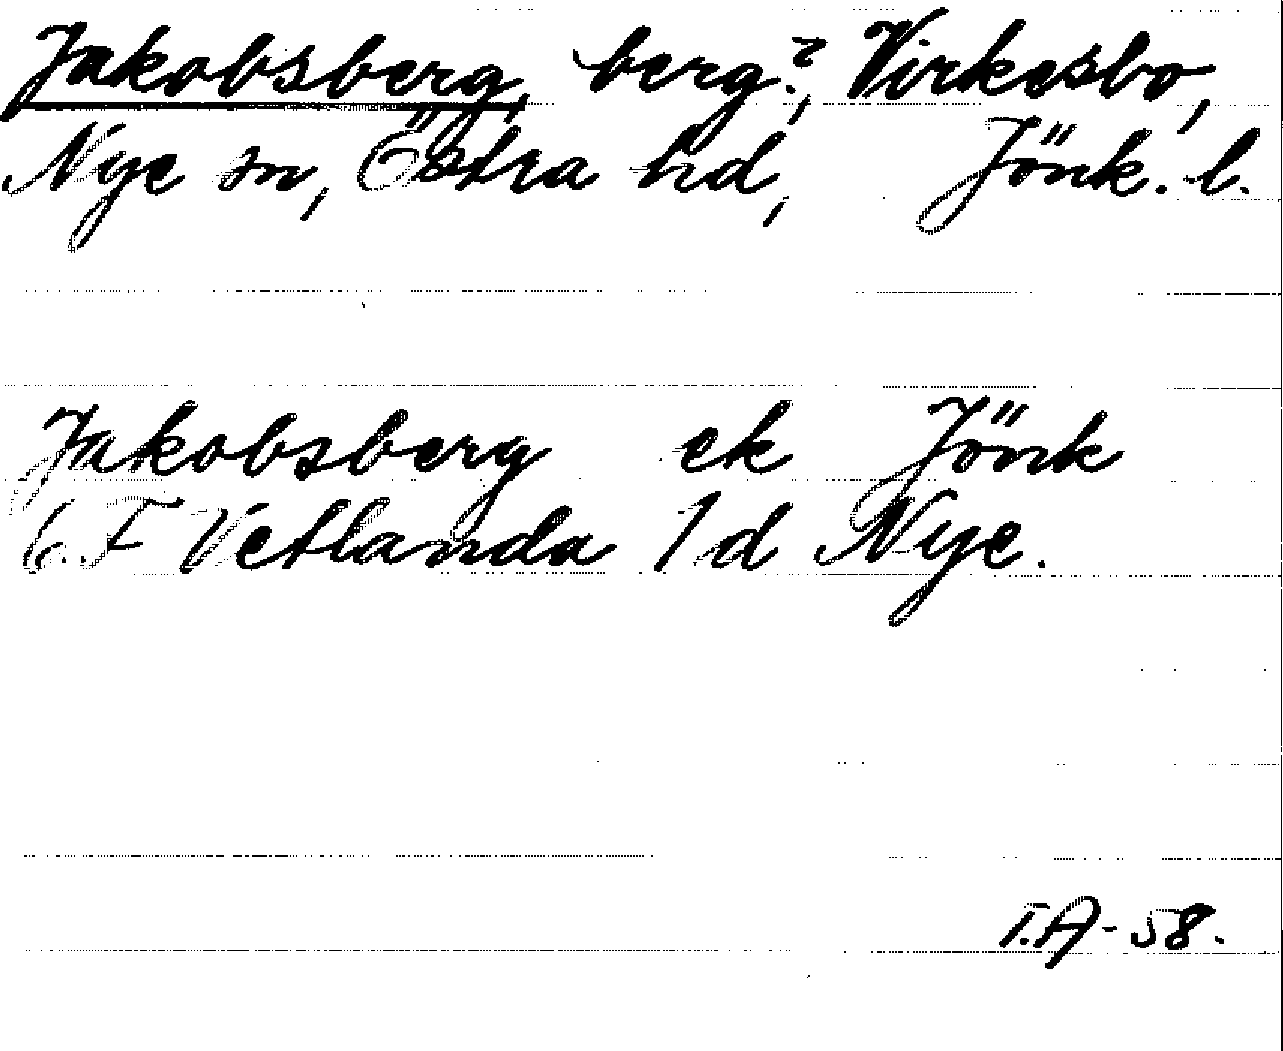 Jakobsberg, berg?, Virkesbo,
Nye sn, Östra hd, Jönk. l.
Jakobsberg ek Jönk
6. F Vetlanda 1 d Nye.
T.A-58.